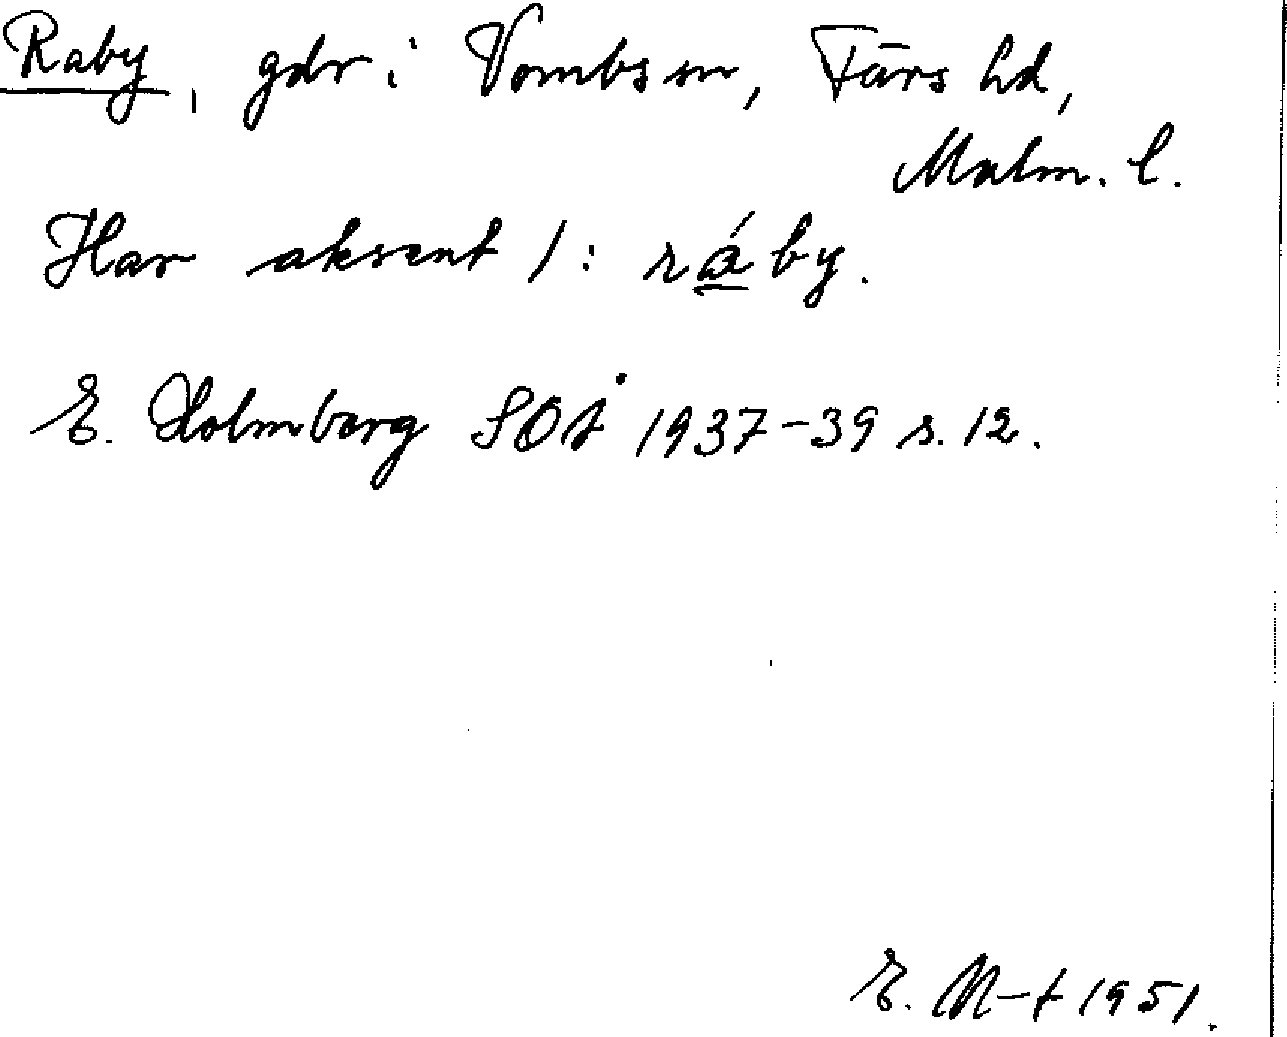 Raby, gdr i Vombs sn, Färs hd,
Malm. l.
Har aksent 1: ráby.
E. Holmberg SOÅ 1937-39 s. 12.
E. N-t 1951.